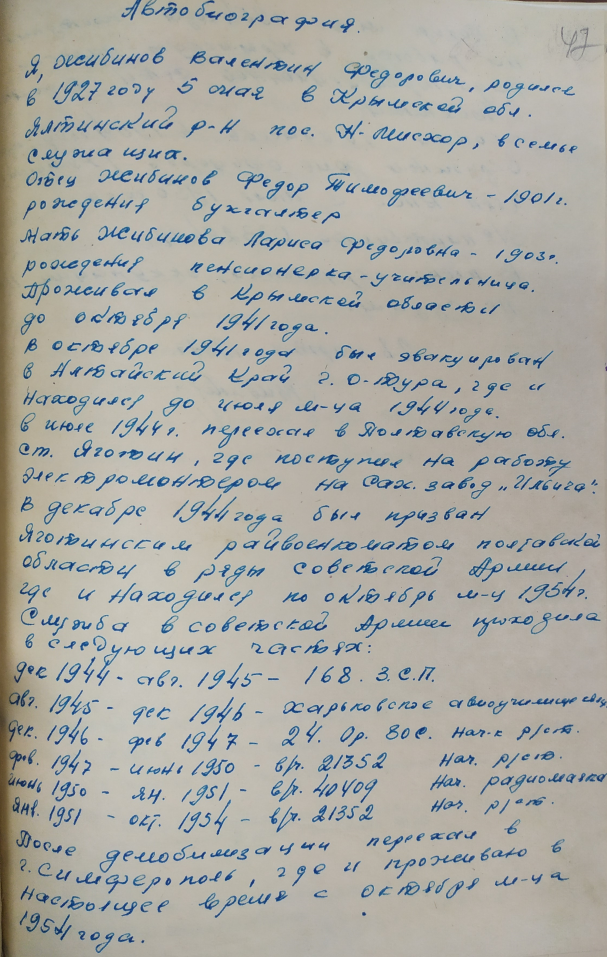 Автобиография.
47
Я, Жибинов Валентин Федорович, родился
в 1927 году 5 мая в Крымской обл.
Ялтинский р-н пос. Н-Мисхор, в семье
служащих.
Отец Жибинов Федор Тимофеевич - 1901 г.
рождения бухгалтер
Мать Жибинова Лариса Федоровна - 1903 г.
рождения пенсионерка-учительница.
Проживал в Крымской области
до октября 1941 года.
В октябре 1941 года был эвакуирован
в Алтайский Край г. О-тура, где и
находился до июля м-ца 1944 года.
в июле 1944 г. переехал в Полтавскую обл.
ст. Яготин, где поступил на работу
электромонтером на Сах. завод „Ильича".
В декабре 1944 года был призван
Яготинским райвоенкоматом полтавской
области в ряды советской Армии,
где и находился по октябрь м-ц 1954 г.
Служба в советской Армии проходила
в следующих частях:
дек 1944 - авг. 1945 - 168. З.С.П.
авг. 1945 - дек 1946 - Харьковское авиоучилище
дек. 1946 - фев 1947 - 24. Ор. ЗОС. нач-к р/ст.
фев. 1947 - июнь 1950 - в/ч. 21352 нач. р/ст.
июнь 1950 - ян. 1951 - в/ч. 40409 нач. радиомаяка
янв. 1951 - окт. 1954 - в/ч. 21352 нач. р/ст.
После демобилизации переехал в
г. Симферополь, где и проживаю в
настоящее время с октября м-ца
1954 года.